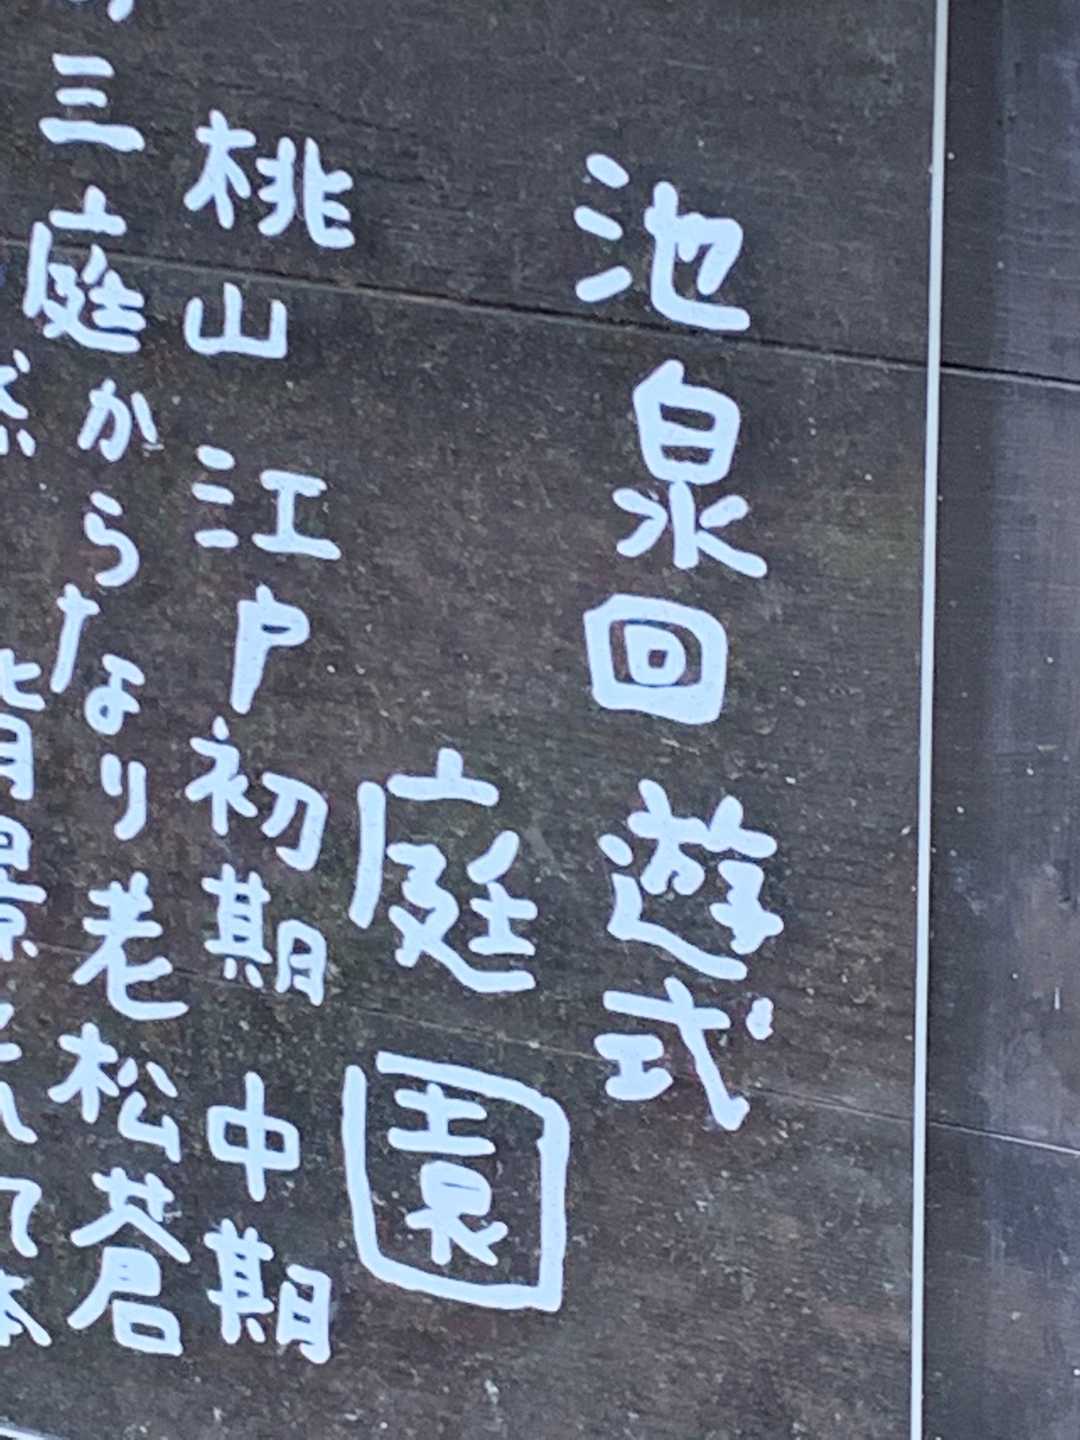 池泉回遊式
庭園
桃山 江戸初期 中期
三庭からなり老松蒼